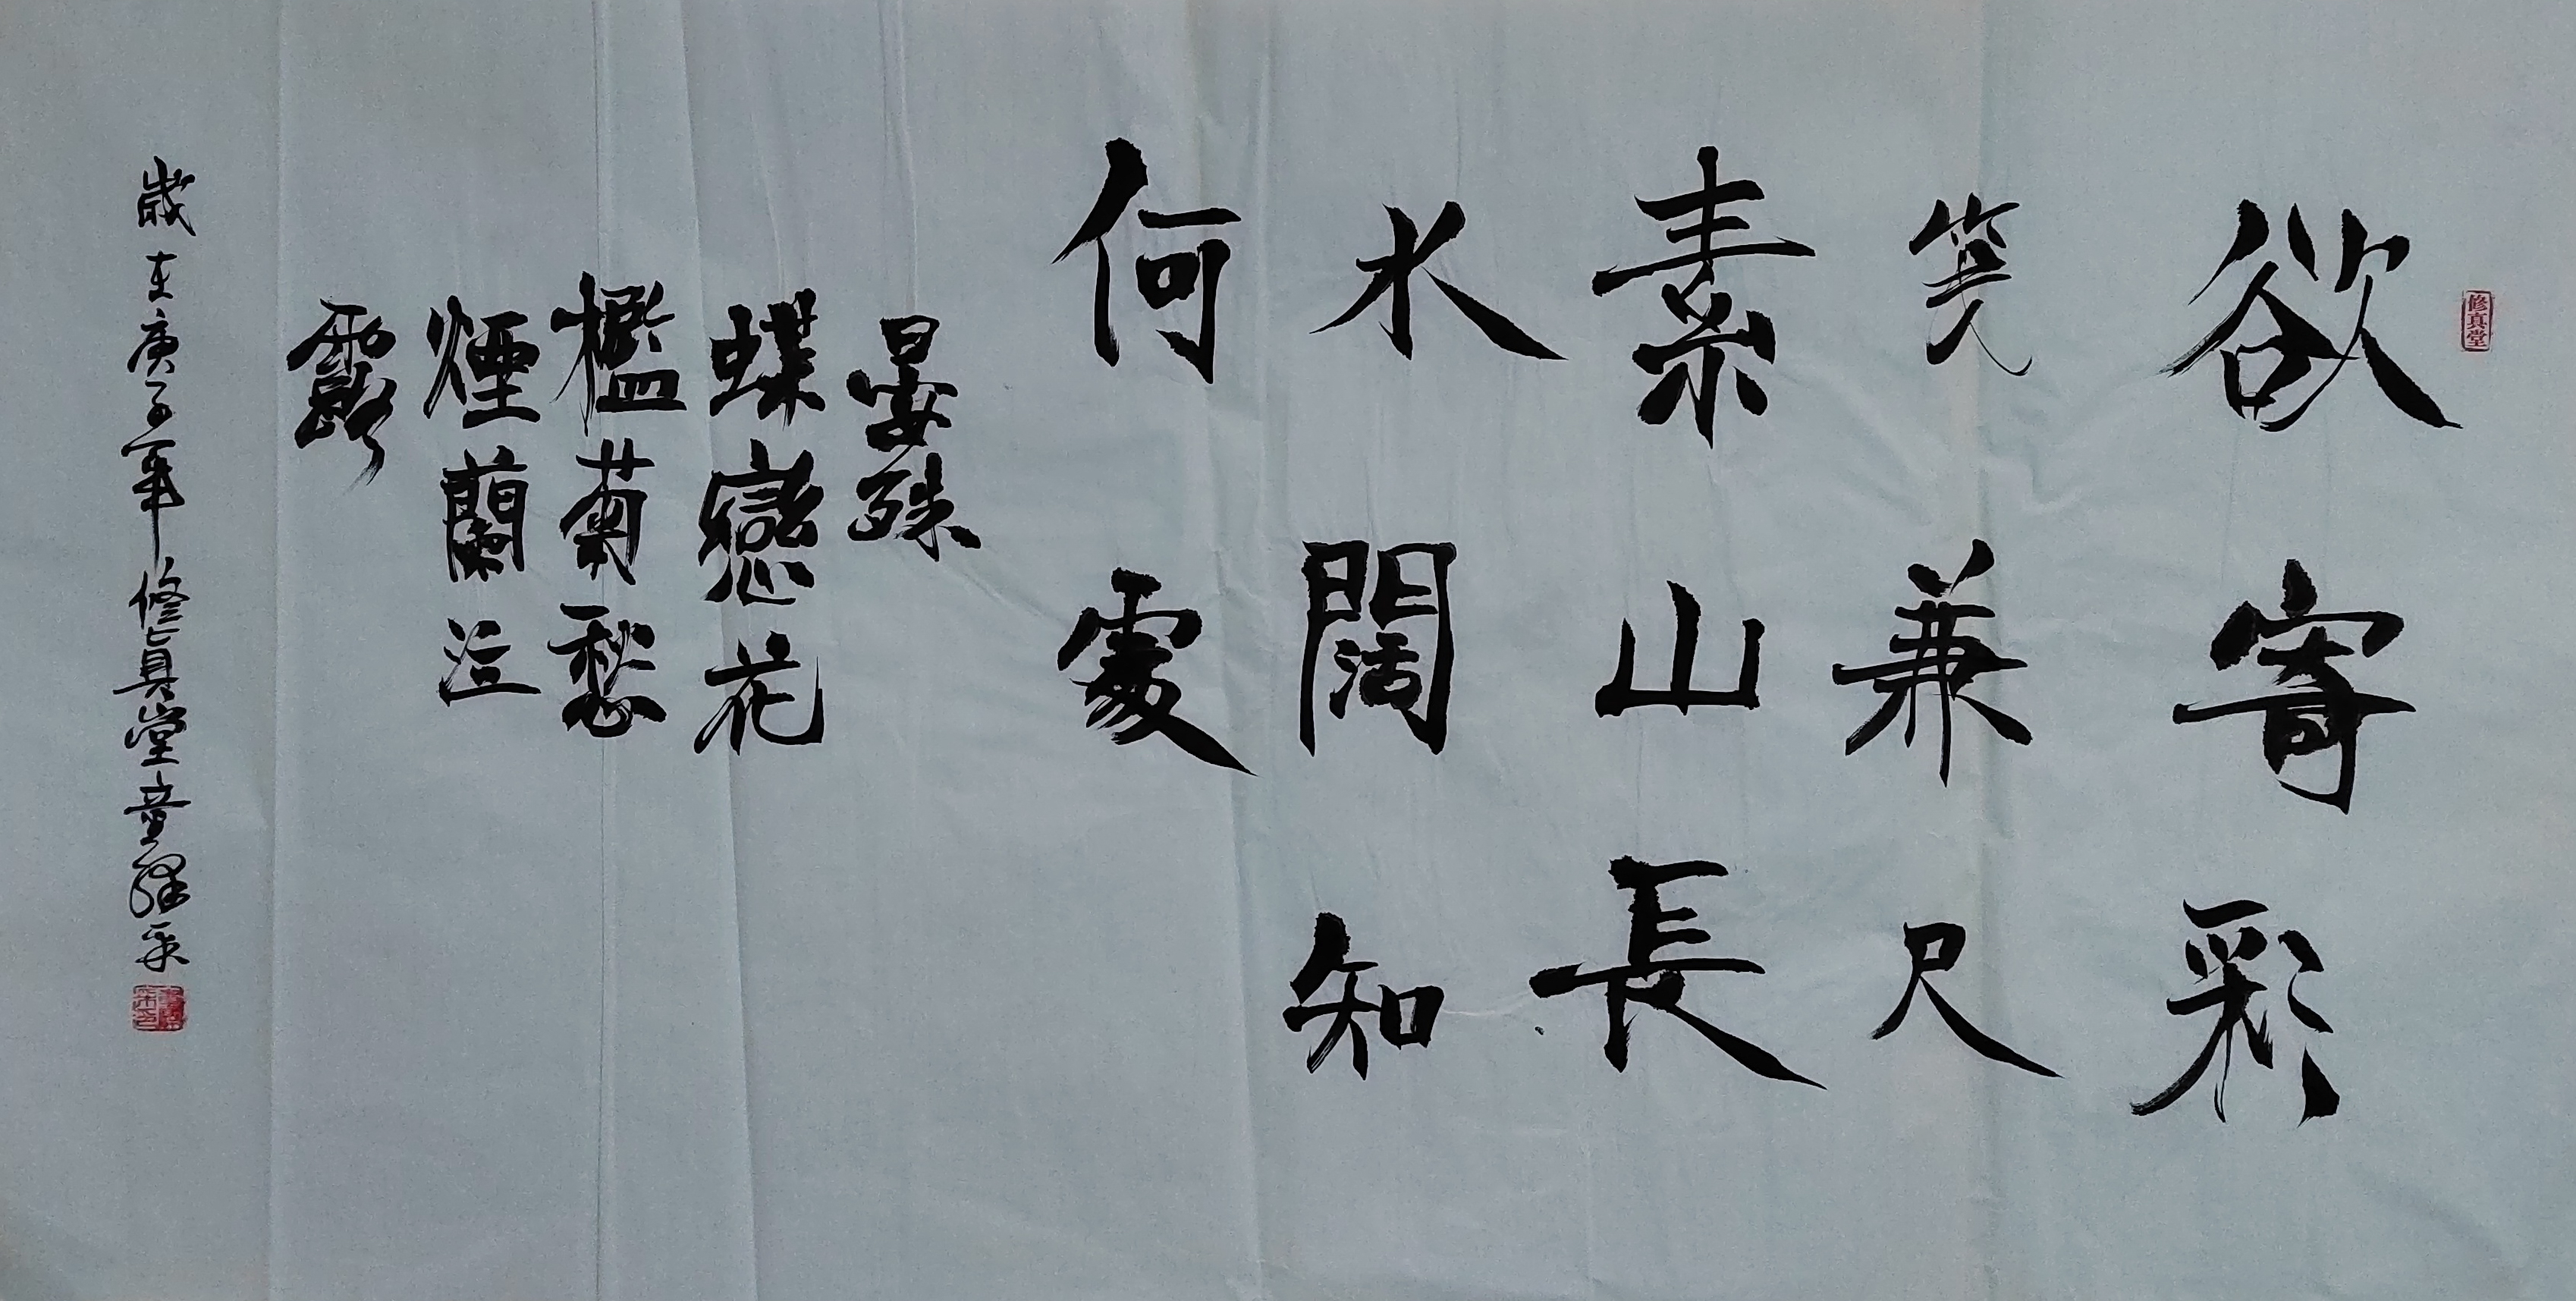 修真堂
欲寄彩
箋兼尺
素山長
水闊知
何處
晏殊
蝶戀花
檻菊愁
煙蘭泣
露
歲在庚子年修真堂童